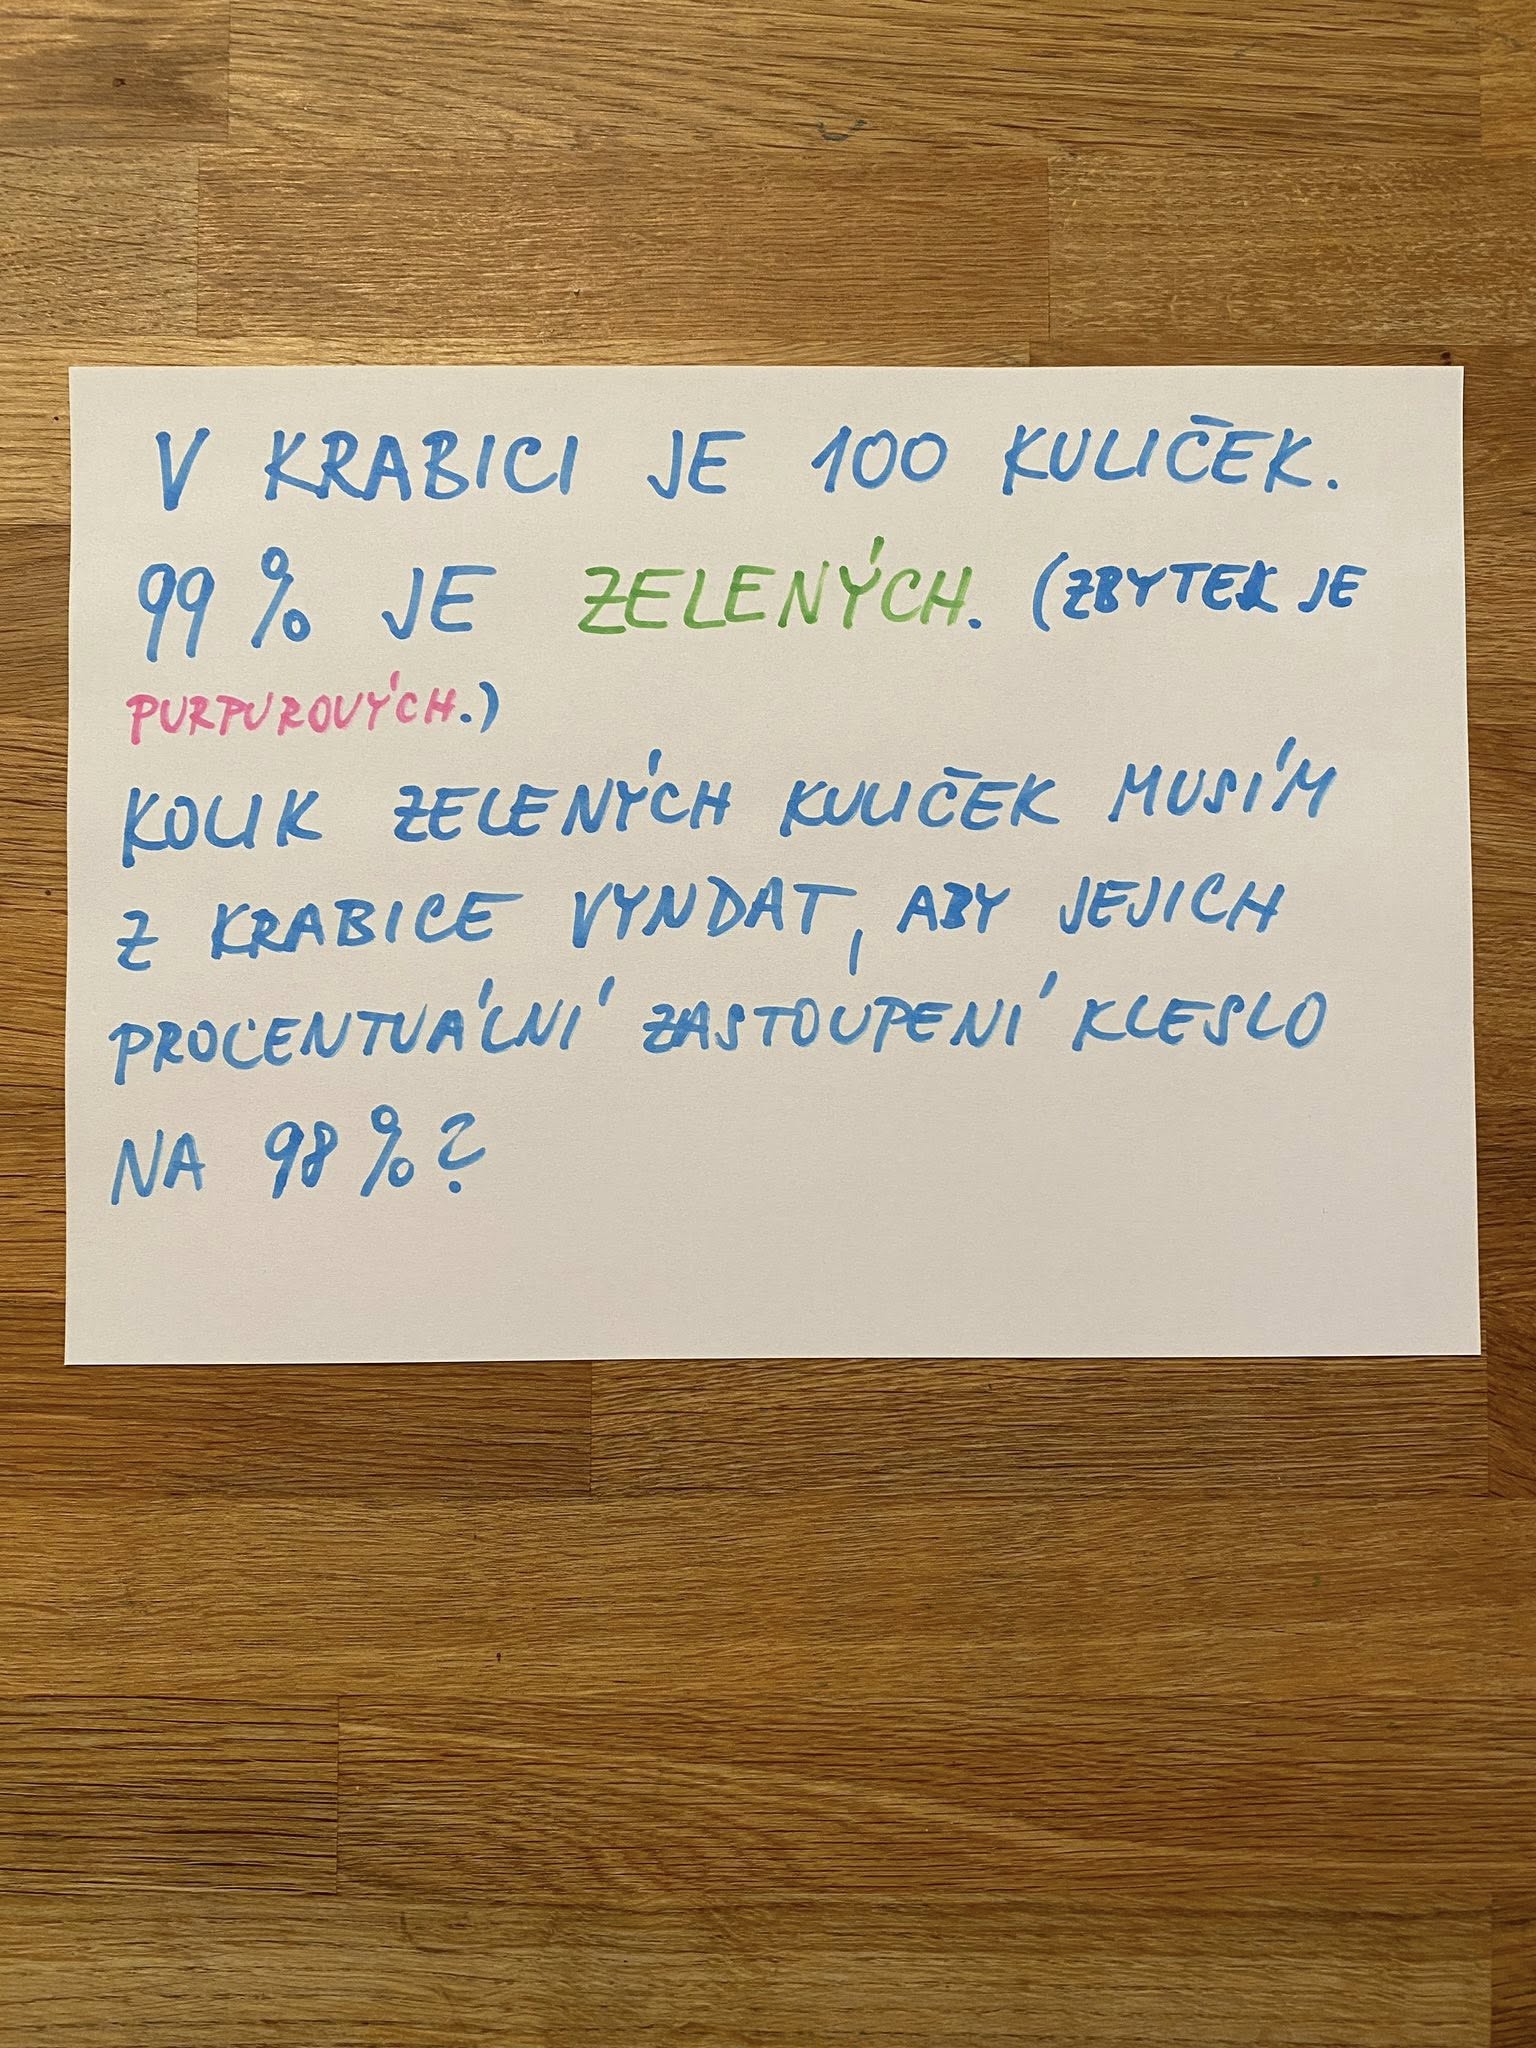 V KRABICI JE 100 KULIČEK.
99 % JE ZELENÝCH. (ZBYTEK JE
PURPUROVÝCH.)
KOLIK ZELENÝCH KULIČEK MUSÍM
Z KRABICE VYNDAT, ABY JEJICH
PROCENTUÁLNÍ ZASTOUPENÍ KLESLO
NA 98 %?